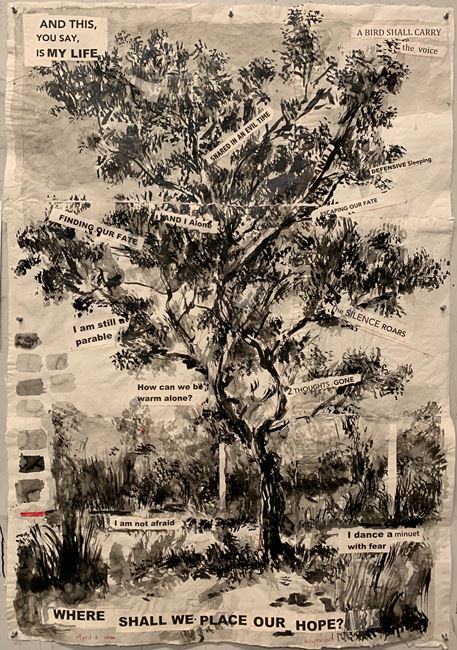 AND THIS,
YOU SAY,
IS MY LIFE
A BIRD SHALL CARRY
the voice
SNARED IN AN EVIL TIME
DEFENSIVE Sleeping
ESCAPING OUR FATE
AND I Alone
FINDING OUR FATE
The SILENCE ROARS
I am still a
parable
2 THOUGHTS, GONE
How can we be
warm alone?
I am not afraid
I dance a minuet
with fear
WHERE SHALL WE PLACE OUR HOPE?